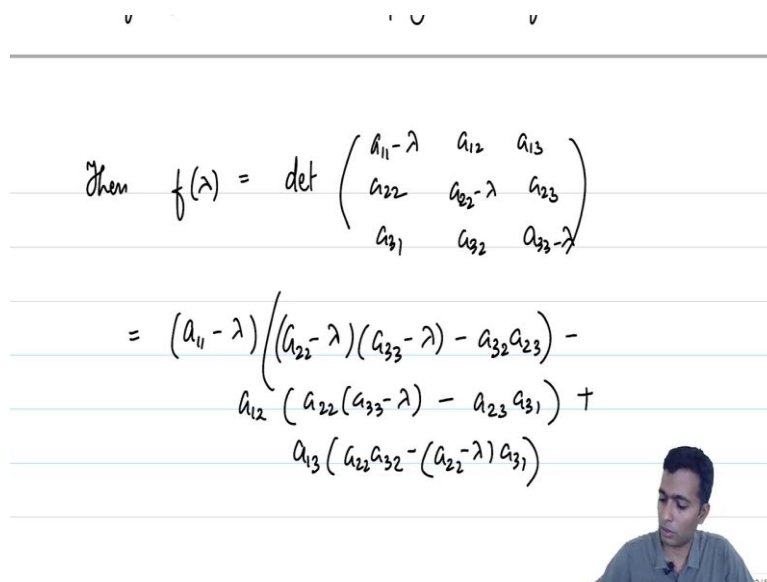 Then f(λ) = det ( a₁₁-λ a₁₂ a₁₃
a₂₂ a₂₂-λ a₂₃
a₃₁ a₃₂ a₃₃-λ )
= (a₁₁ - λ)((a₂₂-λ)(a₃₃-λ) - a₃₂a₂₃) -
a₁₂ (a₂₂(a₃₃-λ) - a₂₃a₃₁) +
a₁₃(a₂₂a₃₂-(a₂₂-λ)a₃₁)